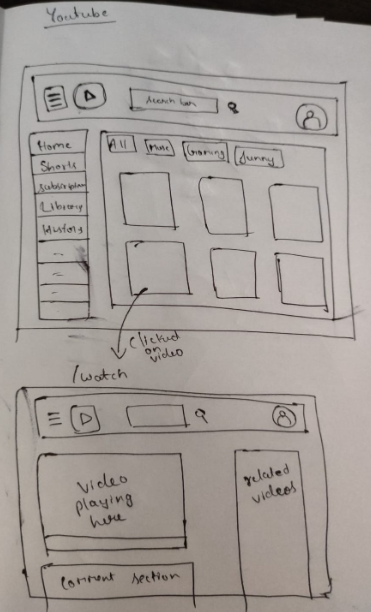 Youtube
Search bar
Home
Shorts
Subscription
Library
History
All
Music
Gaming
Funny
Clicked
on
video
/watch
video
playing
here
related
videos
Comment section